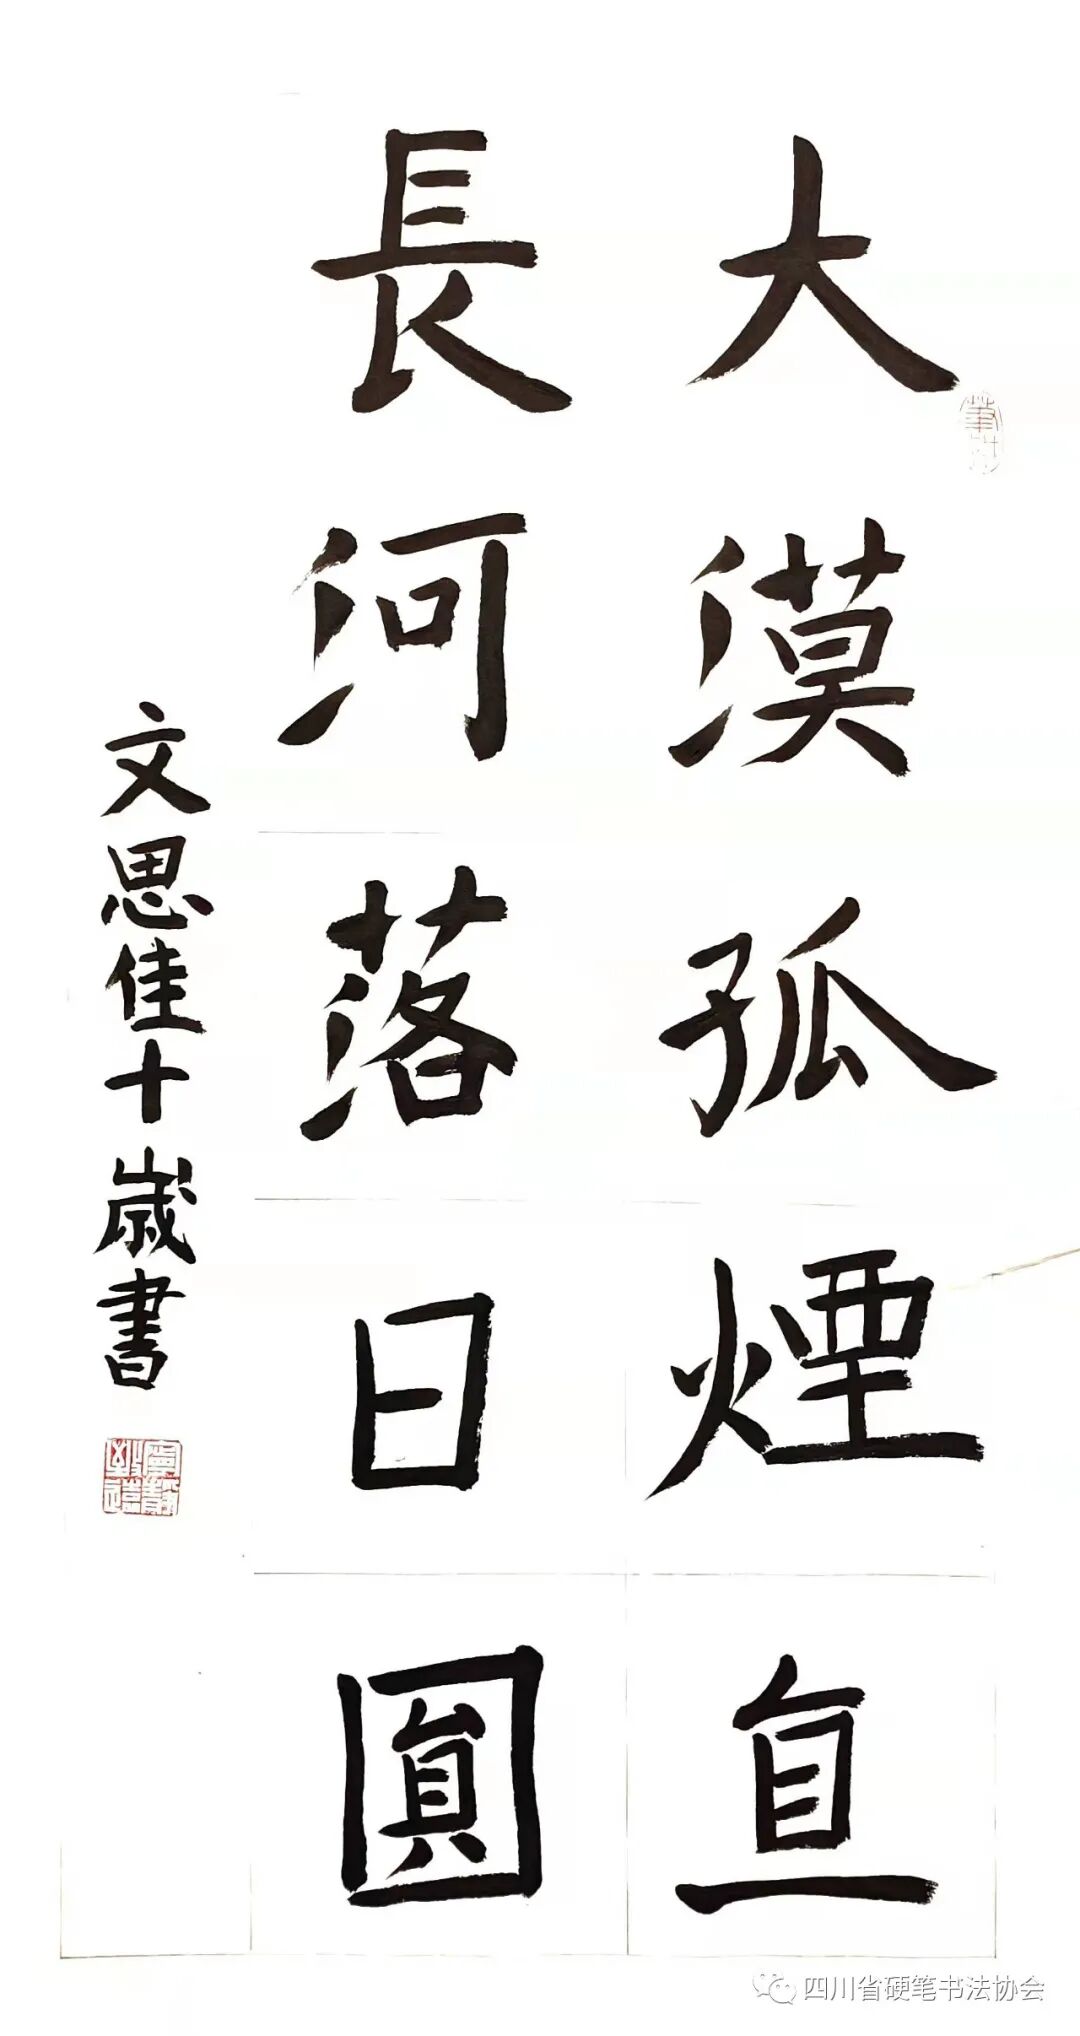 大漠孤煙直
長河落日圓
文思佳十歲書
寧靜致遠
四川省硬笔书法协会